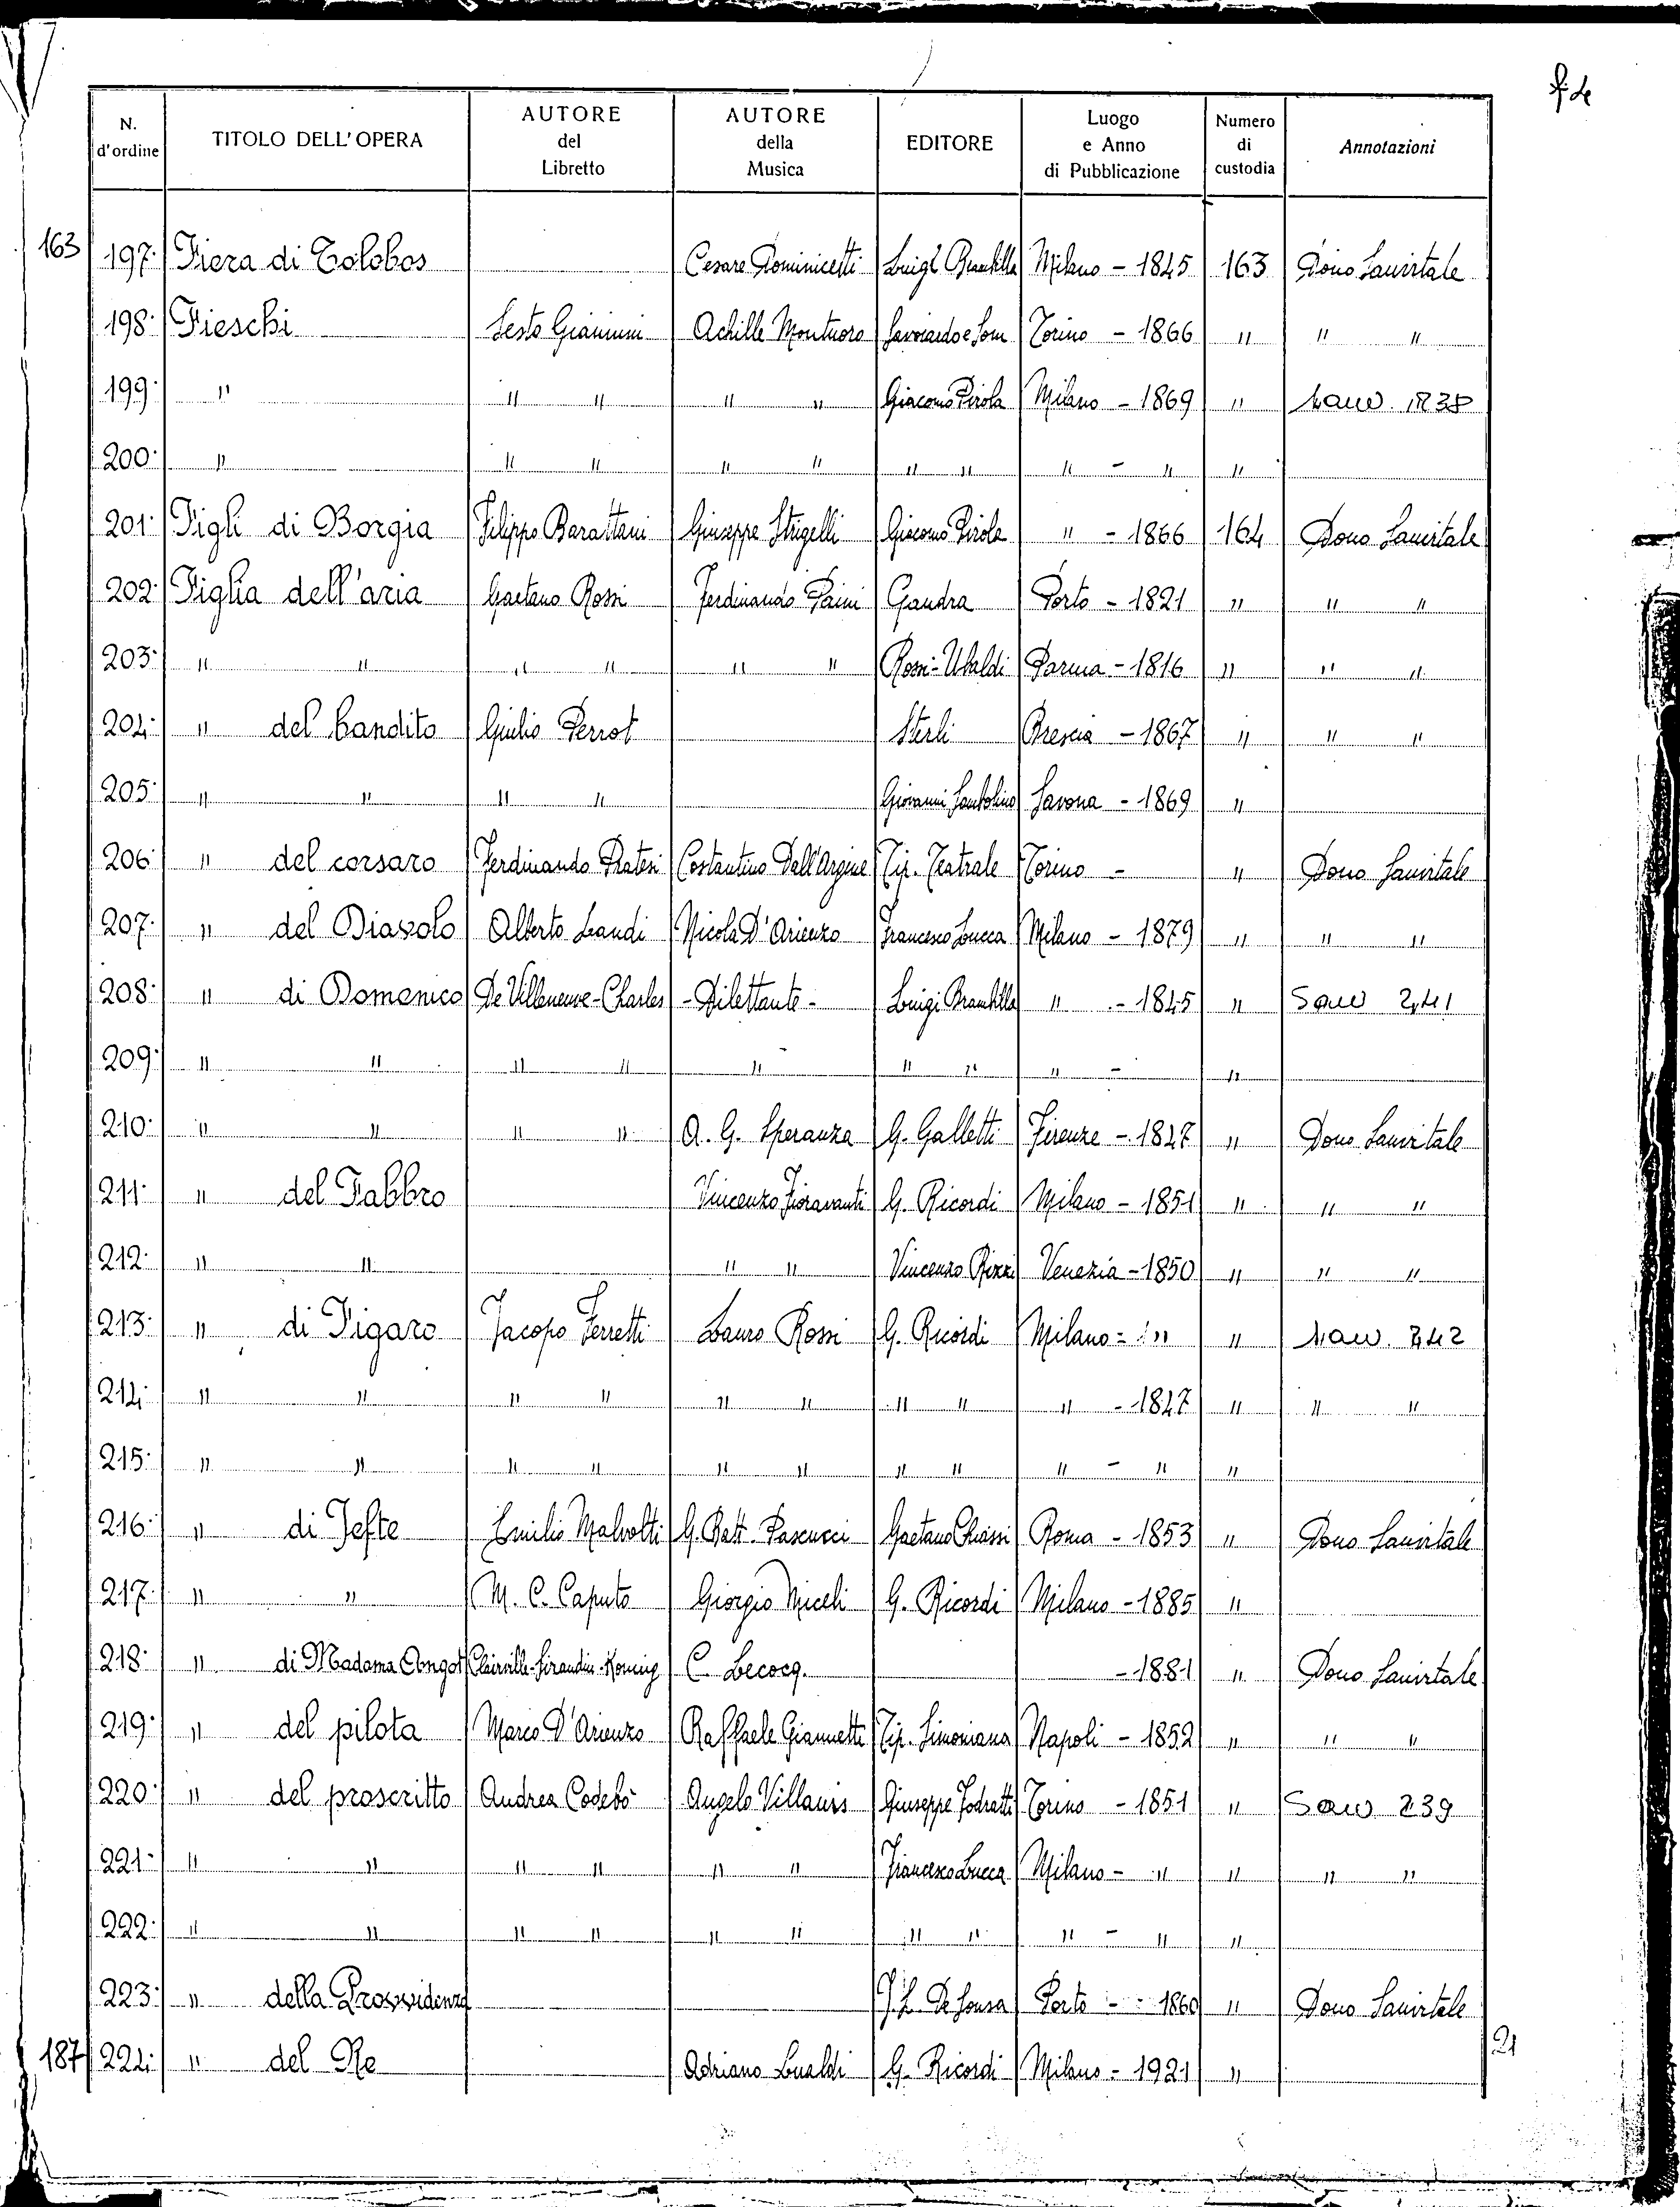 N. d'ordine | TITOLO DELL'OPERA | AUTORE del Libretto | AUTORE della Musica | EDITORE | Luogo e Anno di Pubblicazione | Numero di custodia | Annotazioni
163 197. Fiera di Tolobos Cesare Dominicetti Luigi Brambilla Milano - 1845 163 Dono Sanvitale
198. Fieschi Sesto Giannini Achille Montuoro Savoiardo e Som Torino - 1866 " " "
199. " " " " " Giacomo Pirola Milano - 1869 "
200. " " " " " " " " - " "
201. Figli di Borgia Filippo Barattani Giuseppe Strigelli Giacomo Pirola " - 1866 164 Dono Sanvitale
202. Figlia dell'aria Gaetano Rossi Ferdinando Paini Gandra Porto - 1821 " " "
203. " " " " " " Rossi-Ubaldi Parma - 1816 " " "
204. " del bandito Giulio Perrot Sterli Brescia - 1867 " " "
205. " " " " Giovanni Savona - 1869 "
206. " del corsaro Ferdinando Pratesi Costantino Dall'Argine Tip. Teatrale Torino - " Dono Sanvitale
207. " del Diavolo Alberto Landi Nicola D'Arienzo Francesco Lucca Milano - 1879 " " "
208. " di Domenico De Villeneuve-Charles - Dilettante - Luigi Brambilla " - 1845 " Sanv 241
209. " " " " " " " " - "
210. " " " " A. G. Speranza G. Galletti Firenze - 1847 " Dono Sanvitale
211. " del Fabbro Vincenzo Fioravanti G. Ricordi Milano - 1851 " " "
212. " " " " Vincenzo Rizzi Venezia - 1850 " " "
213. " di Figaro Jacopo Ferretti Lauro Rossi G. Ricordi Milano - " " Sanv. 242
214. " " " " " " " " " - 1847 " " "
215. " " " " " " " " " - " "
216. " di Jefte Emilio Malvolti G. Batt. Pascucci Gaetano Chiassi Roma - 1853 " Dono Sanvitale
217. " " M. C. Caputo Giorgio Miceli G. Ricordi Milano - 1885 "
218. " di Madama Angot Clairville-Siraudin-Koning C. Lecocq - 1881 " Dono Sanvitale
219. " del pilota Marco D'Arienzo Raffaele Giannetti Tip. Simoniana Napoli - 1852 " " "
220. " del proscritto Andrea Codebò Angelo Villanis Giuseppe Fodratti Torino - 1851 " Sanv 239
221. " " " " " " Francesco Lucca Milano - " " " "
222. " " " " " " " " " - " "
223. " della Provvidenza J. L. De Sousa Porto - 1860 " Dono Sanvitale
187 224. " del Re Adriano Lualdi G. Ricordi Milano - 1921 "
21